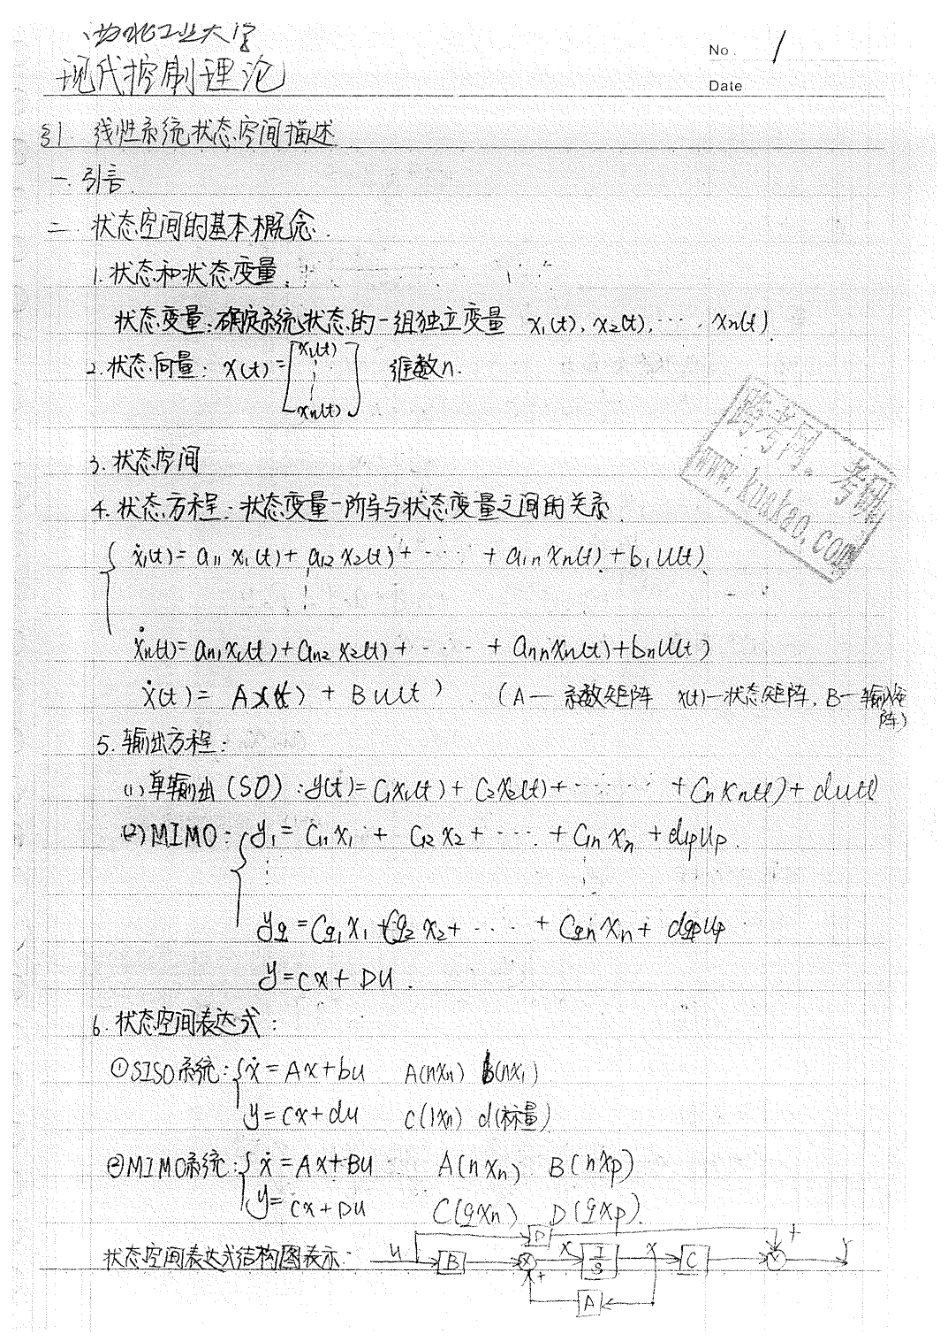 西北工业大学
No. 1
现代控制理论
Date
§1 线性系统状态空间描述
一. 引言.
二. 状态空间的基本概念.
1. 状态和状态变量.
状态变量:确定系统状态的一组独立变量 x₁(t), x₂(t), ⋯ xn(t)
2. 状态向量: x(t)=[x₁(t) ⋮ xn(t)] 维数n.
3. 状态空间
4. 状态方程:状态变量一阶导与状态变量之间的关系
ẋ₁(t)= a₁₁ x₁(t)+ a₁₂ x₂(t)+ ⋯ + a₁n xn(t)+b₁u(t)
⋮
ẋn(t)= an₁x₁(t)+an₂ x₂(t)+ ⋯ + annxn(t)+bnu(t)
ẋ(t)= Ax(t) + Bu(t) (A—系数矩阵 x(t)—状态矩阵, B—输入矩阵)
5. 输出方程:
(1)单输出(SO):y(t)= C₁x₁(t)+ C₂x₂(t)+ ⋯ + Cnxn(t)+du(t)
(2)MIMO: y₁= C₁₁x₁ + C₁₂ x₂ + ⋯ + C₁n xn + d₁pup.
⋮ ⋮
yq =Cq₁x₁ +Cq₂ x₂+ ⋯ + Cqn xn+ dqpup
y=cx+Du.
6. 状态空间表达式:
①SISO系统: ẋ = Ax+bu A(n×n) b(n×1)
y=cx+du c(1×n) d(标量)
②MIMO系统: ẋ = Ax+Bu A(n×n) B(n×p)
y= cx+Du C(q×n) D(q×p).
状态空间表达式结构图表示: u B D + ẋ I/s x C + y
A
跨考网。考研
www.kuakao.com